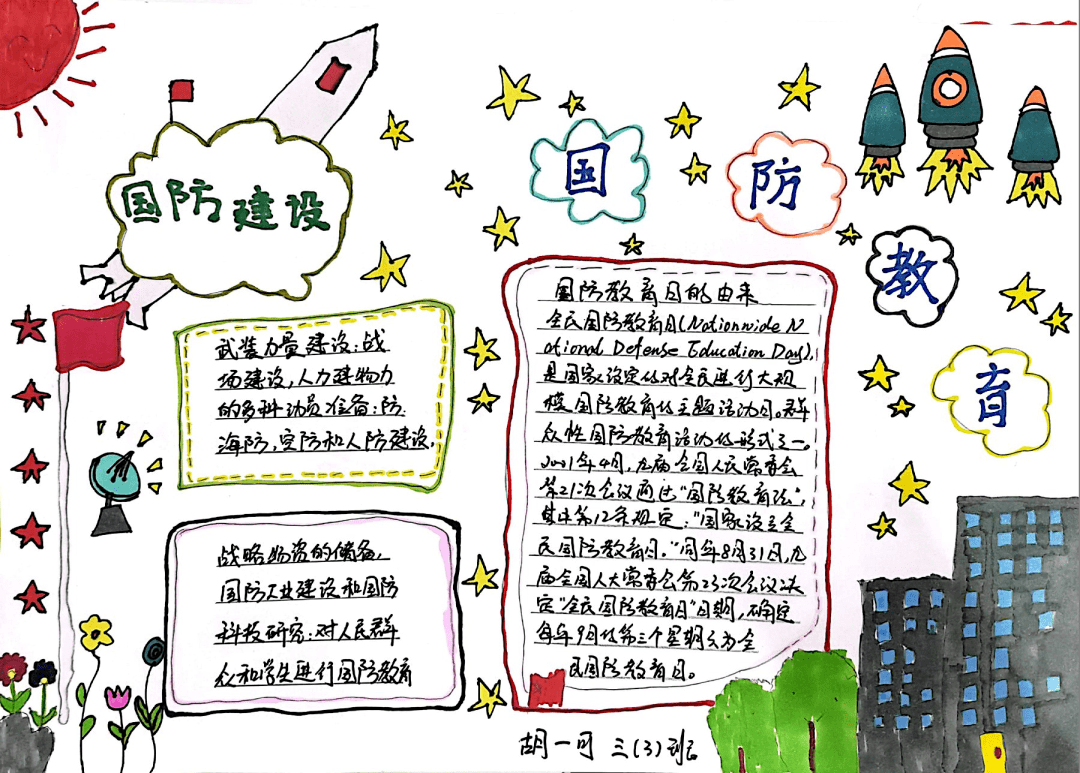 国防建设
国
防
教
育
武装力量建设:战
场建设,人力建物力
的多种动员准备:防
海防,空防和人防建设。
战略物资的储备,
国防工业建设和国防
科技研究:对人民群
众和学生进行国防教育
国防教育日的由来
全民国防教育日(Nationwide N
ational Defense Education Day),
是国家设定的对全民进行大规
模国防教育的主题活动日。群
众性国防教育活动的形式之一。
2001年4月,九届全国人民常委会
第21次会议通过“国防教育法”,
其中第12条规定:“国家设立全
民国防教育日。”同年8月31日,九
届全国人大常委会第23次会议决
定“全民国防教育日”日期,确定
每年9月的第三个星期六为全
民国防教育日。
胡一可 三(3)班